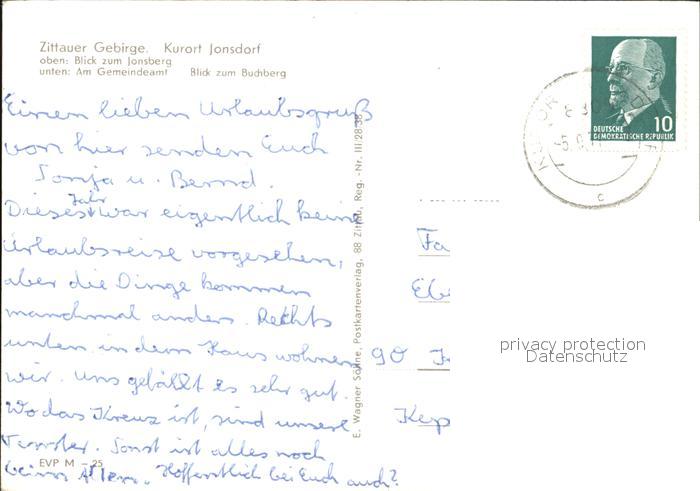 Zittauer Gebirge. Kurort Jonsdorf
oben: Blick zum Jonsberg
unten: Am Gemeindeamt Blick zum Buchberg
Einen lieben Urlaubsgruß
von hier senden Euch
Sonja u. Bernd.
Dieses Jahr war eigentlich keine
Urlaubsreise vorgesehen,
aber die Dinge kommen
manchmal anders. Rechts
unten in dem Haus wohnen
wir. Uns gefällt es sehr gut.
Wo das Kreuz ist, sind unsere
Fenster. Sonst ist alles noch
beim Alten. Hoffentlich bei Euch auch?
EVP M –25
E. Wagner Söhne, Postkartenverlag, 88 Zittau, Reg.-Nr. III/28/38
10
DEUTSCHE
DEMOKRATISCHE REPUBLIK
c
Fa
Ebe
90
Kep
privacy protection
Datenschutz